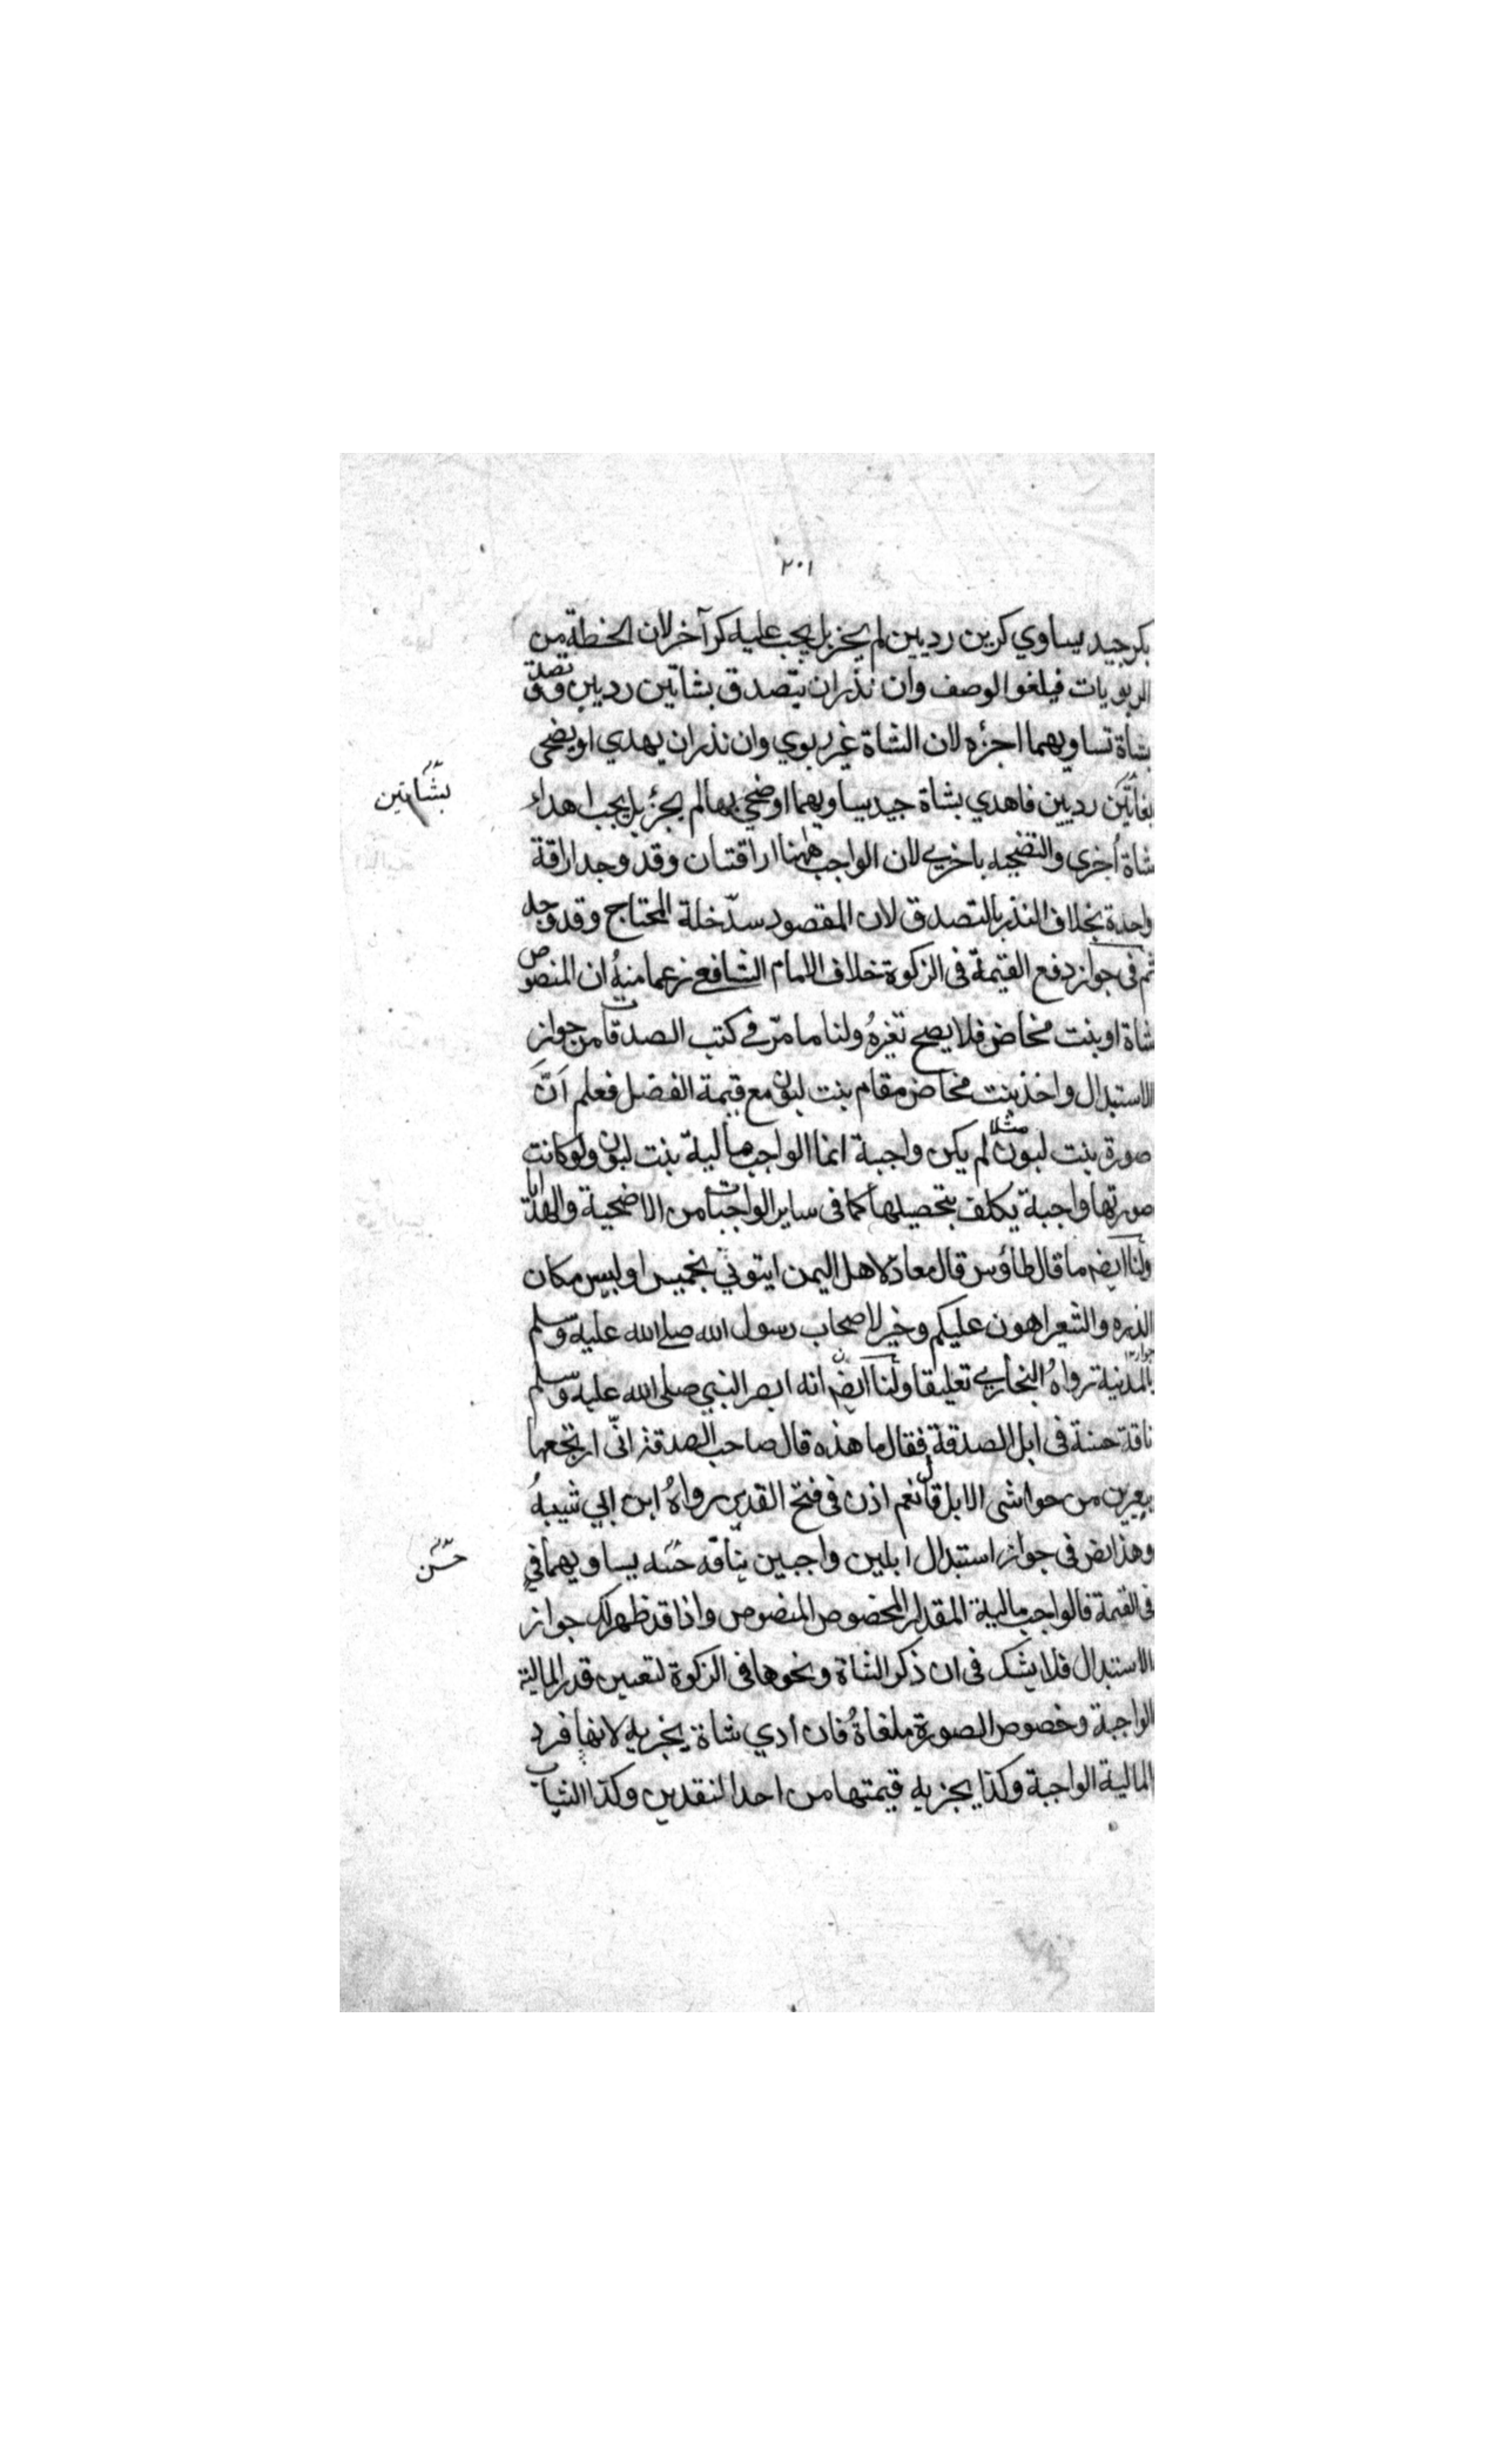 ٢٠١
بكر جيد يساوي كرين رديين لم يجز بل يجب عليه كر آخر لان الحنطة من
الربويات فيلغو الوصف وان نذر ان يتصدق بشاتين رديين وتصدق
بشاة تساويهما اجزء لان الشاة غير ربوي وان نذر ان يهدي او يضحي
بشاتين رديين فاهدي بشاة جيد يساويهما او ضحي بها لم يجز بل يجب اهداء
بشاتين
شاة أخرى والتضحية باخرى لان الواجب ههنا اراقتان وقد وجد اراقة
واحدة بخلاف النذر بالتصدق لان المقصود سدّ خلة المحتاج وقد وجد
ثم في جواز دفع القيمة في الزكوة خلاف الامام الشافعي زعما منه ان المنصوص
شاة او بنت مخاض فلا يصح تغيره ولنا ما مرّ في كتب الصدقات من جواز
الاستبدال واخذ بنت مخاض مقام بنت لبون مع قيمة الفضل فعلم اَنَّ
صورة بنت لبون مثلا لم يكن واجبة انما الواجب مالية بنت لبون ولو كانت
صورتها واجبة يكلف بتحصيلها كما في ساير الواجبات من الاضحية والهدايا
ولنا ايضا ما قال طاؤس قال معاذ لاهل اليمن ايتوني بخميس او لبيس مكان
الذره والشعير اهون عليكم وخير لاصحاب رسول الله صلى الله عليه وسلم
بالمدينة رواهُ البخاري تعليقا ولنا ايضا انه ابصر النبي صلى الله عليه وسلم
ناقة حسنة في ابل الصدقة فقال ما هذه قال صاحب الصدقة انّى ارتجعها
ببعيرين من حواشى الابل قال نعم اذن في فتح القدير رواهُ ابن ابي شيبهُ
وهذا نص في جواز استبدال ابلين واجبين بناقة حسنه يساويهما في
حسن
في القيمة فالواجب مالية المقدار المخصوص المنصوص واذا قد ظهر لك جواز
الاستبدال فلا يشك في ان ذكر الشاة ونحوها في الزكوة لتعيين قدر المالية
الواجبة وخصوص الصورة ملغاةُ فان أدي شاة يجزيه لانها فرد
المالية الواجبة وكذا يجزيه قيمتها من احد النقدين وكذا الثياب